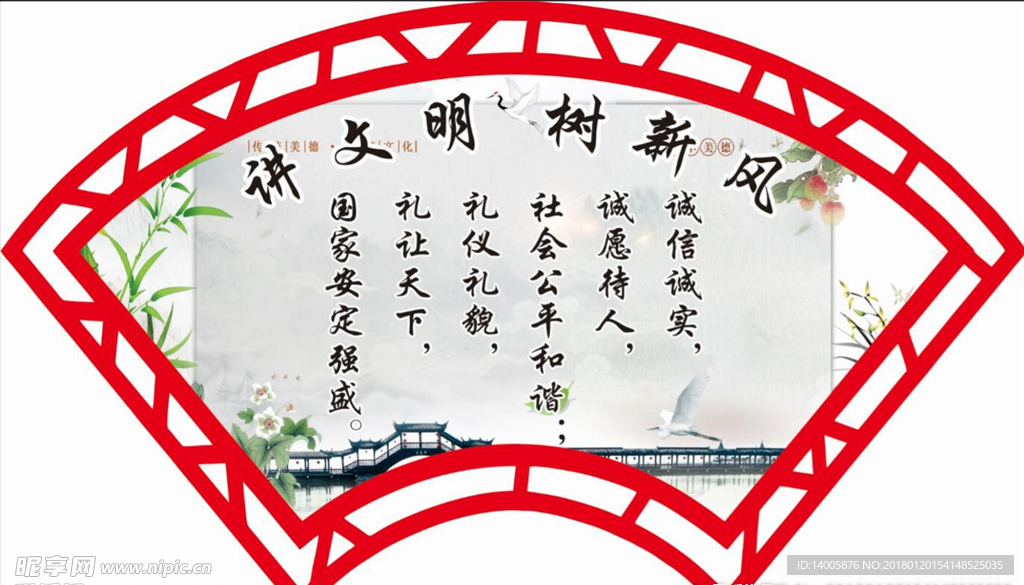 讲文明树新风
诚信诚实，
诚愿待人，
社会公平和谐；
礼仪礼貌，
礼让天下，
国家安定强盛。
昵享网 www.nipic.cn
ID:14005876 NO:20180120154148525035